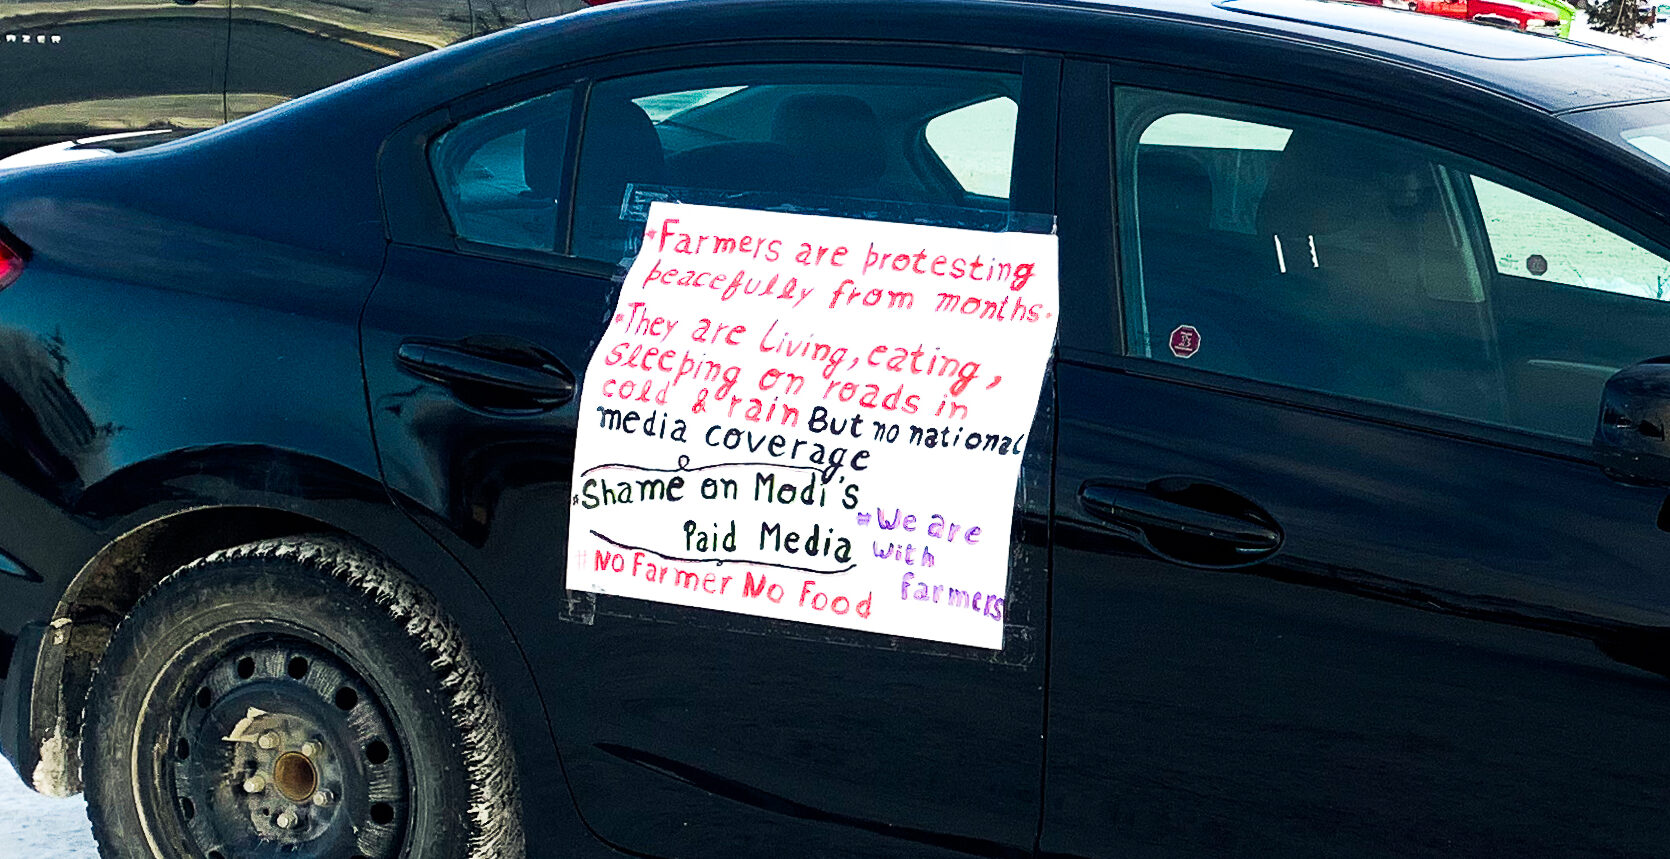 AZER
*Farmers are protesting
peacefully from months.
*They are Living, eating,
sleeping on roads in
cold & rain But no national
media coverage
*Shame on Modi's
Paid Media
#We are
with
farmers
#No Farmer No Food